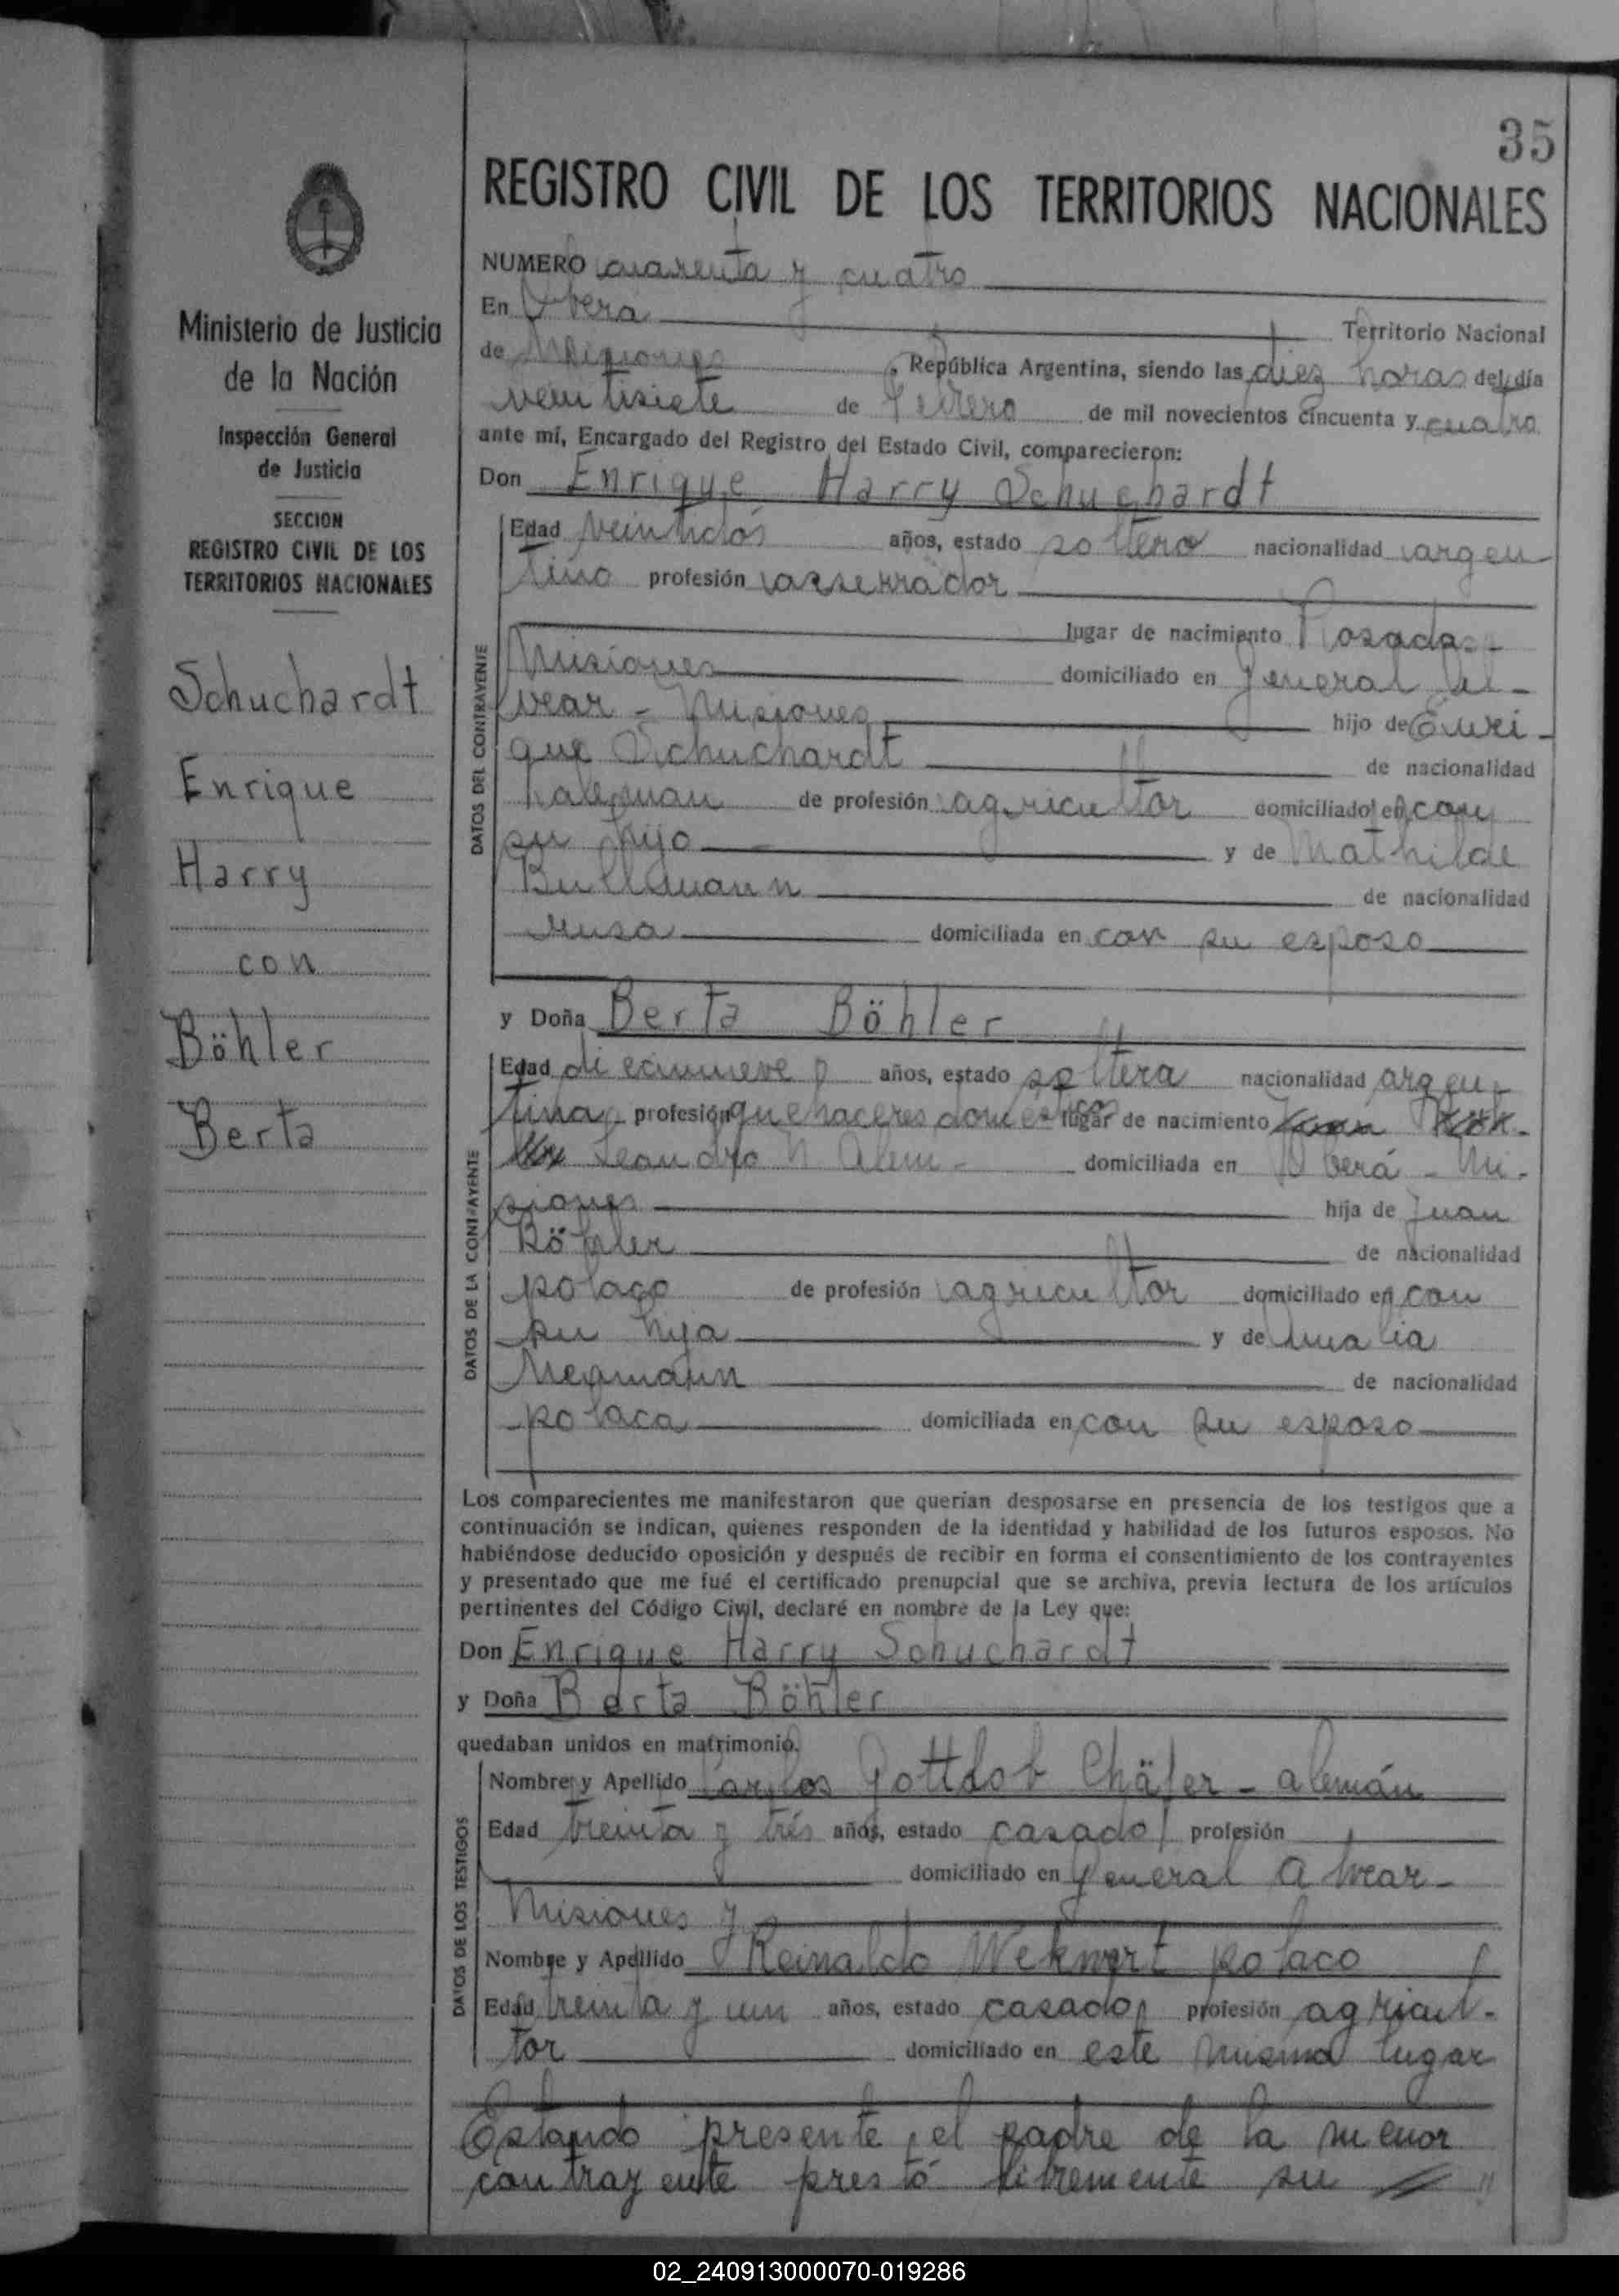 35
REGISTRO CIVIL DE LOS TERRITORIOS NACIONALES
Ministerio de Justicia
de la Nación
Inspección General
de Justicia
SECCION
REGISTRO CIVIL DE LOS
TERRITORIOS NACIONALES
Schuchardt
Enrique
Harry
con
Böhler
Berta
NUMERO cuarenta y cuatro
En Oberá Territorio Nacional
de Misiones, República Argentina, siendo las diez horas del día
veintisiete de Febrero de mil novecientos cincuenta y cuatro
ante mí, Encargado del Registro del Estado Civil, comparecieron:
Don Enrique Harry Schuchardt
DATOS DEL CONTRAYENTE
Edad veintidós años, estado soltero nacionalidad argen
tino profesión aserrador
lugar de nacimiento Posadas -
Misiones domiciliado en General Al-
vear - Misiones hijo de Enri-
que Schuchardt de nacionalidad
aleman de profesión agricultor domiciliado en con
su hijo y de Mathilde
de nacionalidad
rusa domiciliada en con su esposo
y Doña Berta Böhler
DATOS DE LA CONTRAYENTE
Edad diecinueve años, estado soltera nacionalidad argen-
tina profesión quehaceres domésticos lugar de nacimiento
Leandro N Alem - domiciliada en Oberá - Mi-
siones hija de Juan
Böhler de nacionalidad
polaco de profesión agricultor domiciliado en con
su hija y de Amalia
de nacionalidad
polaca domiciliada en con su esposo
Los comparecientes me manifestaron que querían desposarse en presencia de los testigos que a
continuación se indican, quienes responden de la identidad y habilidad de los futuros esposos. No
habiéndose deducido oposición y después de recibir en forma el consentimiento de los contrayentes
y presentado que me fué el certificado prenupcial que se archiva, previa lectura de los artículos
pertinentes del Código Civil, declaré en nombre de la Ley que:
Don Enrique Harry Schuchardt
y Doña Berta Böhler
quedaban unidos en matrimonio.
DATOS DE LOS TESTIGOS
Nombre y Apellido Carlos Gottlob Chäfer - alemán
Edad treinta y trés años, estado casado profesión
domiciliado en General Alvear -
Misiones y
Nombre y Apellido Reinaldo polaco
Edad treinta y un años, estado casado profesión agricul-
tor domiciliado en este mismo lugar
Estando presente el padre de la menor
contrayente prestó libremente su
02_240913000070-019286